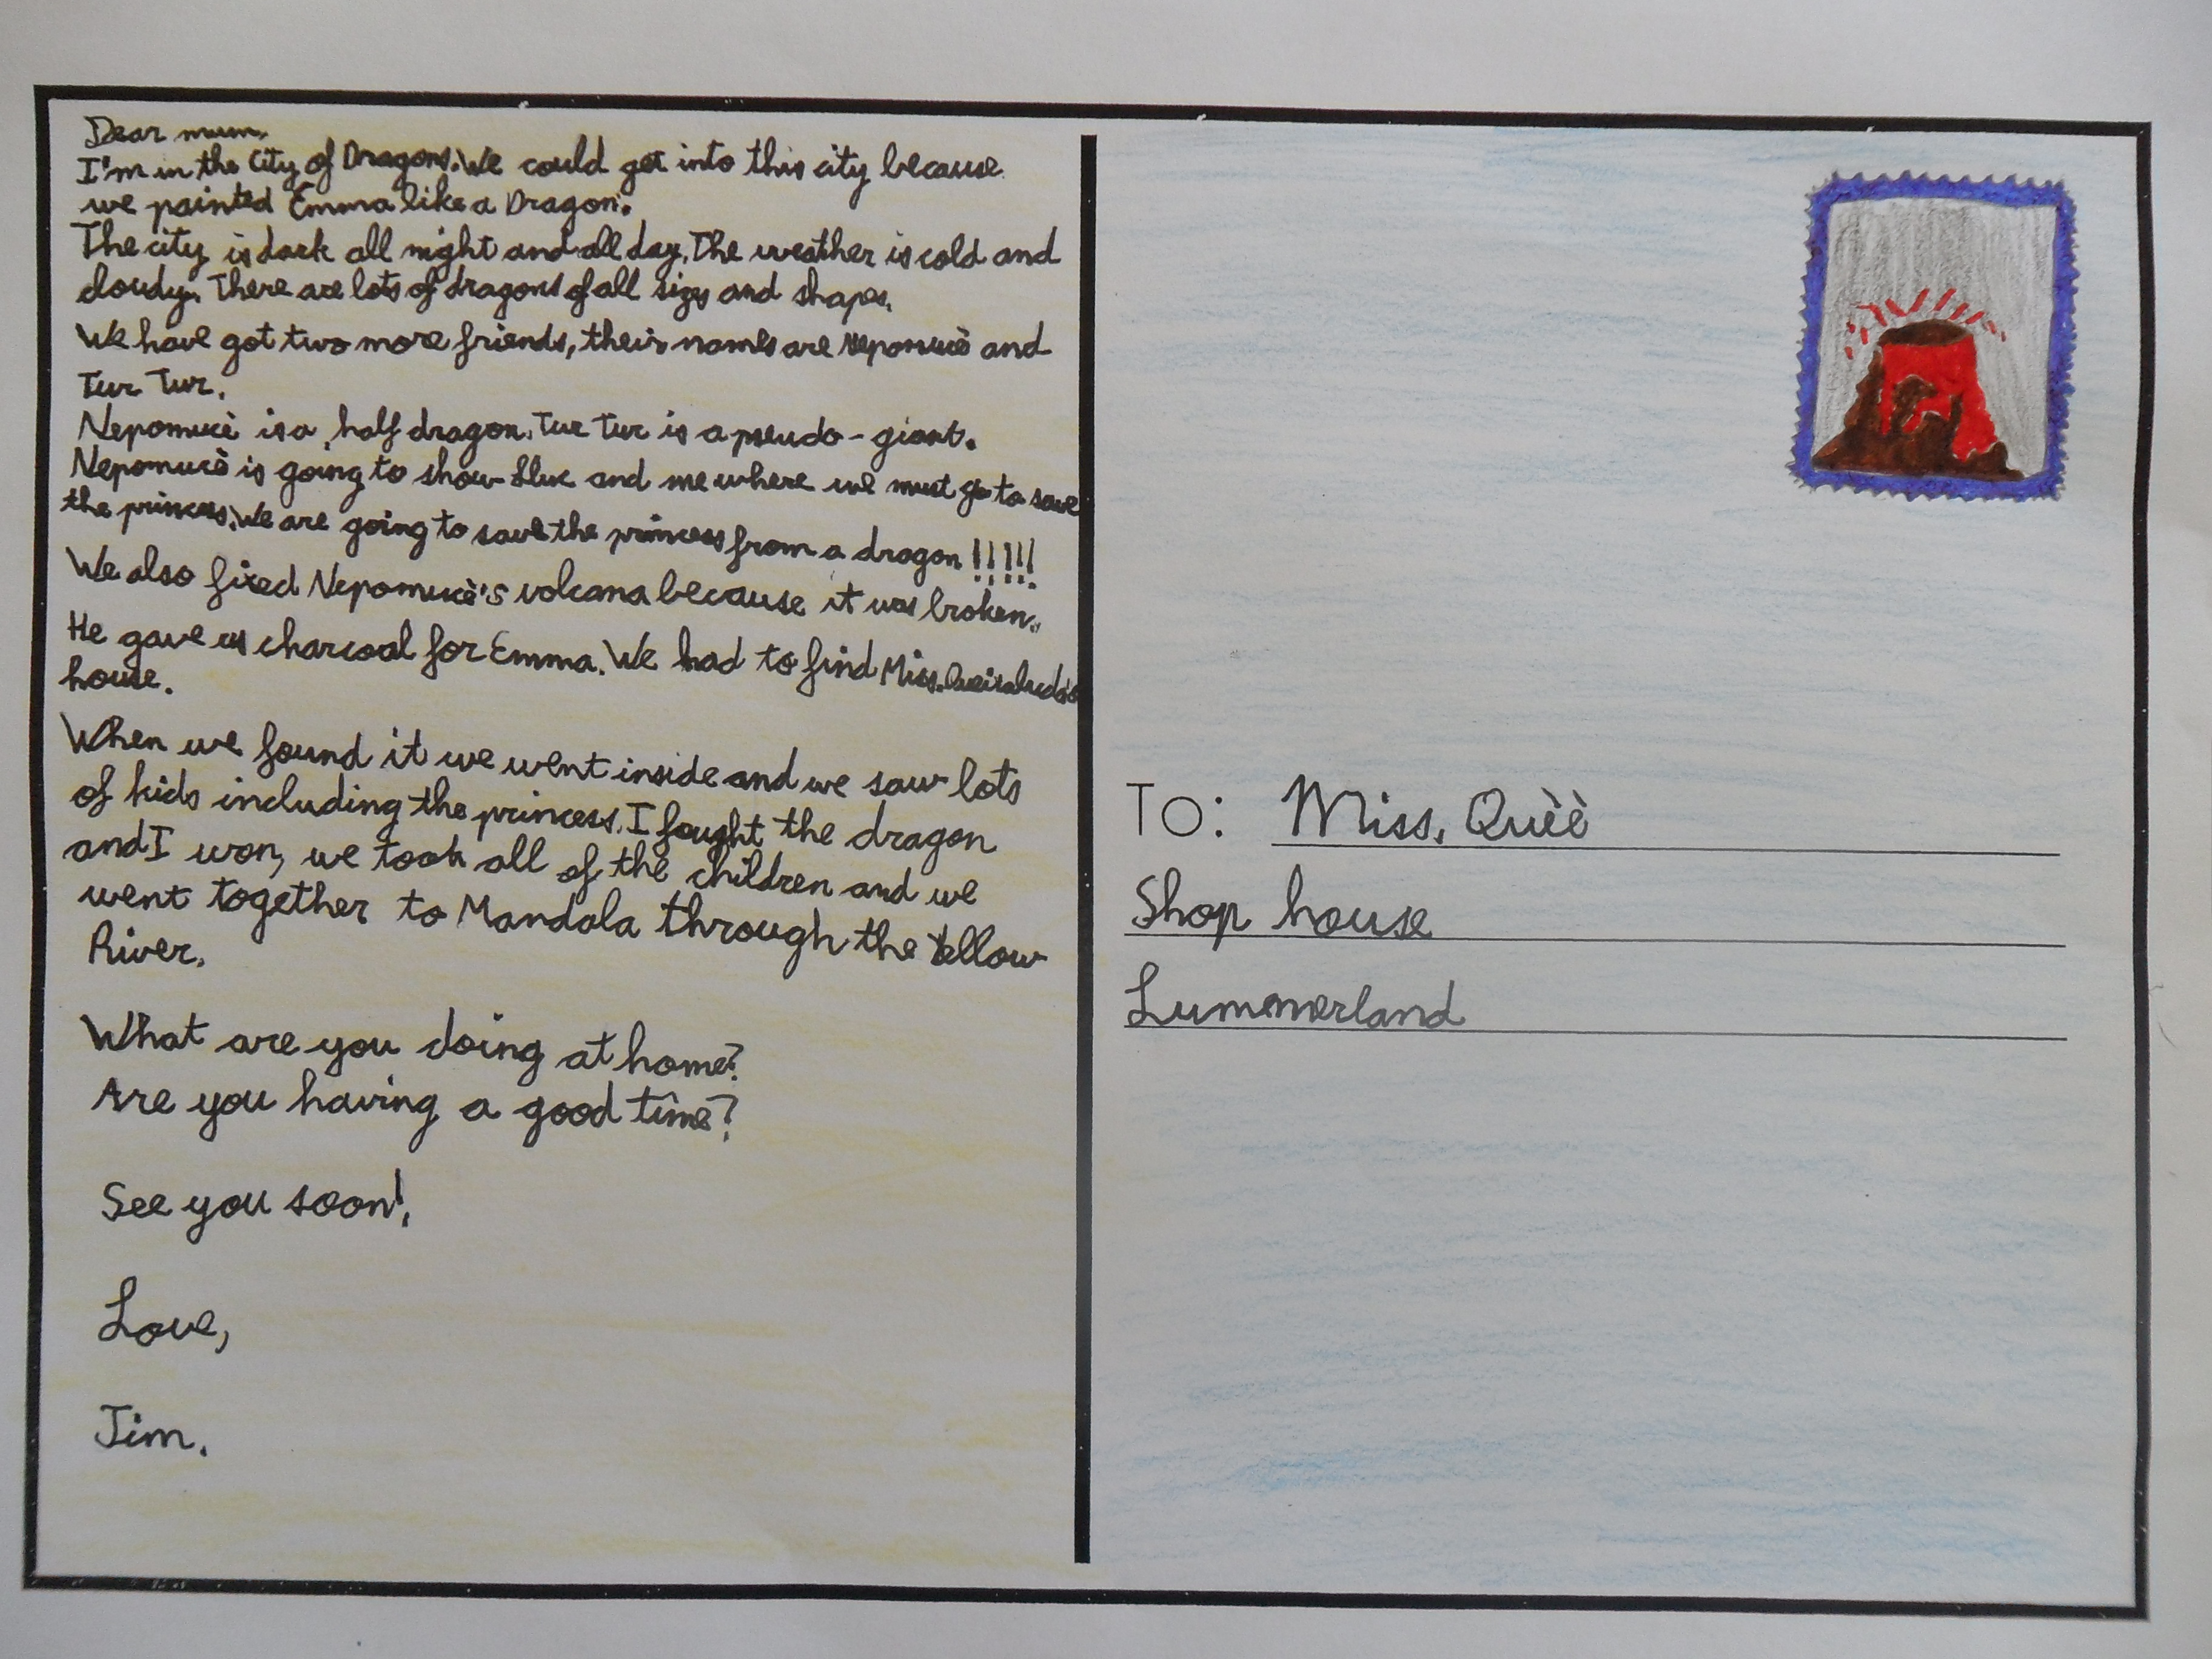 Dear mum,
I'm in the City of Dragons. We could get into this city because
we painted Emma like a Dragon.
The city is dark all night and all day. The weather is cold and
cloudy. There are lots of dragons of all sizes and shapes.
We have got two more friends, their names are Nepomucè and
Tur Tur.
Nepomucè is a half dragon. Tur Tur is a pseudo-giant.
Nepomucè is going to show Lluc and me where we must go to save
the princess. We are going to save the princess from a dragon !!!!!
We also fixed Nepomucè's volcano because it was broken.
He gave us charcoal for Emma. We had to find Miss.
house.
When we found it we went inside and we saw lots
of kids including the princess. I fought the dragon
and I won, we took all of the children and we
went together to Mandala through the Yellow
River.
What are you doing at home?
Are you having a good time?
See you soon!
Love,
Jim.
TO: Miss. Quèè
Shop house
Lummerland